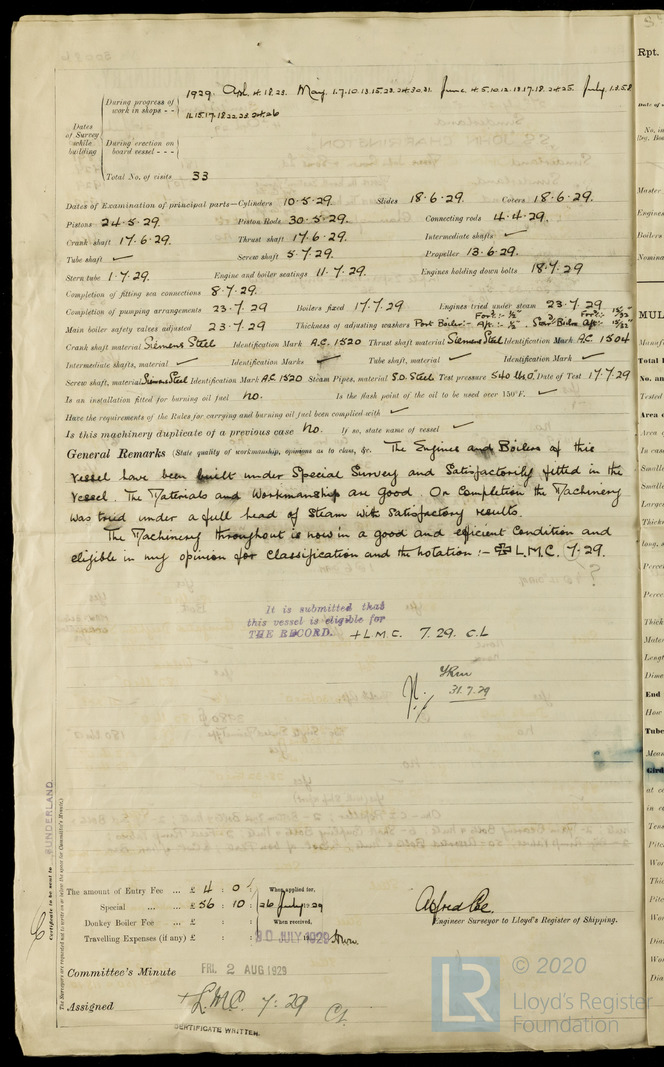 1929. Apl. 4. 18. 23. May. 1. 7. 10. 13. 15. 23. 24. 30. 31. June. 4. 5. 10. 12. 13. 17. 18. 24. 25. July. 1. 3. 5. 8
During progress of work in shops - -
11. 15. 17. 18. 22. 23. 24. 26
Dates of Survey while building
During erection on board vessel - - -
Total No. of visits 33
Dates of Examination of principal parts—Cylinders 10·5·29. Slides 18·6·29. Covers 18·6·29.
Pistons 24·5·29. Piston Rods 30·5·29. Connecting rods 4·4·29.
Crank shaft 17·6·29. Thrust shaft 17·6·29. Intermediate shafts ✓
Tube shaft ✓ Screw shaft 5·7·29. Propeller 13·6·29.
Stern tube 1·7·29. Engine and boiler seatings 11·7·29. Engines holding down bolts 18·7·29
Completion of fitting sea connections 8·7·29.
Completion of pumping arrangements 23·7·29 Boilers fixed 17·7·29 Engines tried under steam 23·7·29
Main boiler safety valves adjusted 23·7·29 Thickness of adjusting washers Port Boiler:- For'd:- ½" Aft:- ½". Star'd Boiler For'd:- Aft:-
Crank shaft material Siemens Steel Identification Mark A.C. 1520 Thrust shaft material Siemens Steel Identification Mark AC 1504
Intermediate shafts, material ✓ Identification Marks ✓ Tube shaft, material ✓ Identification Mark ✓
Screw shaft, material Siemens Steel Identification Mark AC 1520 Steam Pipes, material S.D. Steel Test pressure 540 lbs □" Date of Test 17·7·29
Is an installation fitted for burning oil fuel no. Is the flash point of the oil to be used over 150°F. ✓
Have the requirements of the Rules for carrying and burning oil fuel been complied with ✓
Is this machinery duplicate of a previous case no. If so, state name of vessel ✓
General Remarks (State quality of workmanship, opinions as to class, &c. The Engines and Boilers of this
Vessel have been built under Special Survey and Satisfactorily fitted in the
Vessel. The Materials and Workmanship are Good. On Completion the Machinery
was tried under a full head of Steam with Satisfactory results.
The Machinery throughout is now in a good and efficient condition and
eligible in my opinion for Classification and the notation :- ✠ L.M.C. 7·29.
It is submitted that
this vessel is eligible for
THE RECORD. + L M C. 7. 29. C.L
31.7.29
Certificate to be sent to SUNDERLAND
The amount of Entry Fee ... £ 4 : 0 : When applied for,
Special ... £ 56 : 10 : 26 July 1929
Donkey Boiler Fee ... £ : : When received,
Travelling Expenses (if any) £ : : 30 JULY 1929
Engineer Surveyor to Lloyd's Register of Shipping.
Committee's Minute FRI. 2 AUG 1929
Assigned + L.M.C. 7·29 CL
CERTIFICATE WRITTEN.
LR © 2020
Lloyd's Register
Foundation
Rpt.
Master
Engines
Boilers
MUL